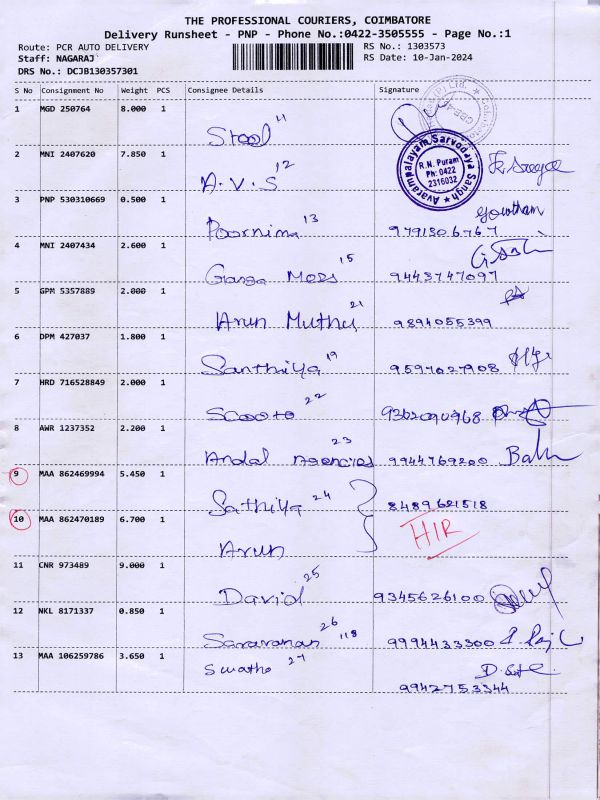 THE PROFESSIONAL COURIERS, COIMBATORE
Delivery Runsheet - PNP - Phone No.:0422-3505555 - Page No.:1
Route: PCR AUTO DELIVERY
RS No.: 1303573
Staff: NAGARAJ
RS Date: 10-Jan-2024
DRS No.: DCJB130357301
S No Consignment No Weight PCS Consignee Details Signature
1 MGD 250764 8.000 1
Steel 11
2 MNI 2407620 7.850 1
A.V.S 12
Avarampalayam Sarvodaya Sangh
R.N. Puram
Ph: 0422
2316032
3 PNP 530310669 0.500 1
Poornima 13 Gowtham
9791306767
4 MNI 2407434 2.600 1
Ganga Meds 15 9443747097
5 GPM 5357889 2.000 1
Arun Muthu 21 9894055399
6 DPM 427037 1.800 1
Santhiya 19 9597027908
7 HRD 716528849 2.000 1
Scooto 22 9362090968
8 AWR 1237352 2.200 1
Andal Agencies 23 9944769200 Balu
9 MAA 862469994 5.450 1
Sathiya 24 8489621518
10 MAA 862470189 6.700 1
HIR
Arun
11 CNR 973489 9.000 1
David 25 9345626100
12 NKL 8171337 0.850 1
Saravanan 26 118 9994433300
13 MAA 106259786 3.650 1
Swatha 27
9942753344